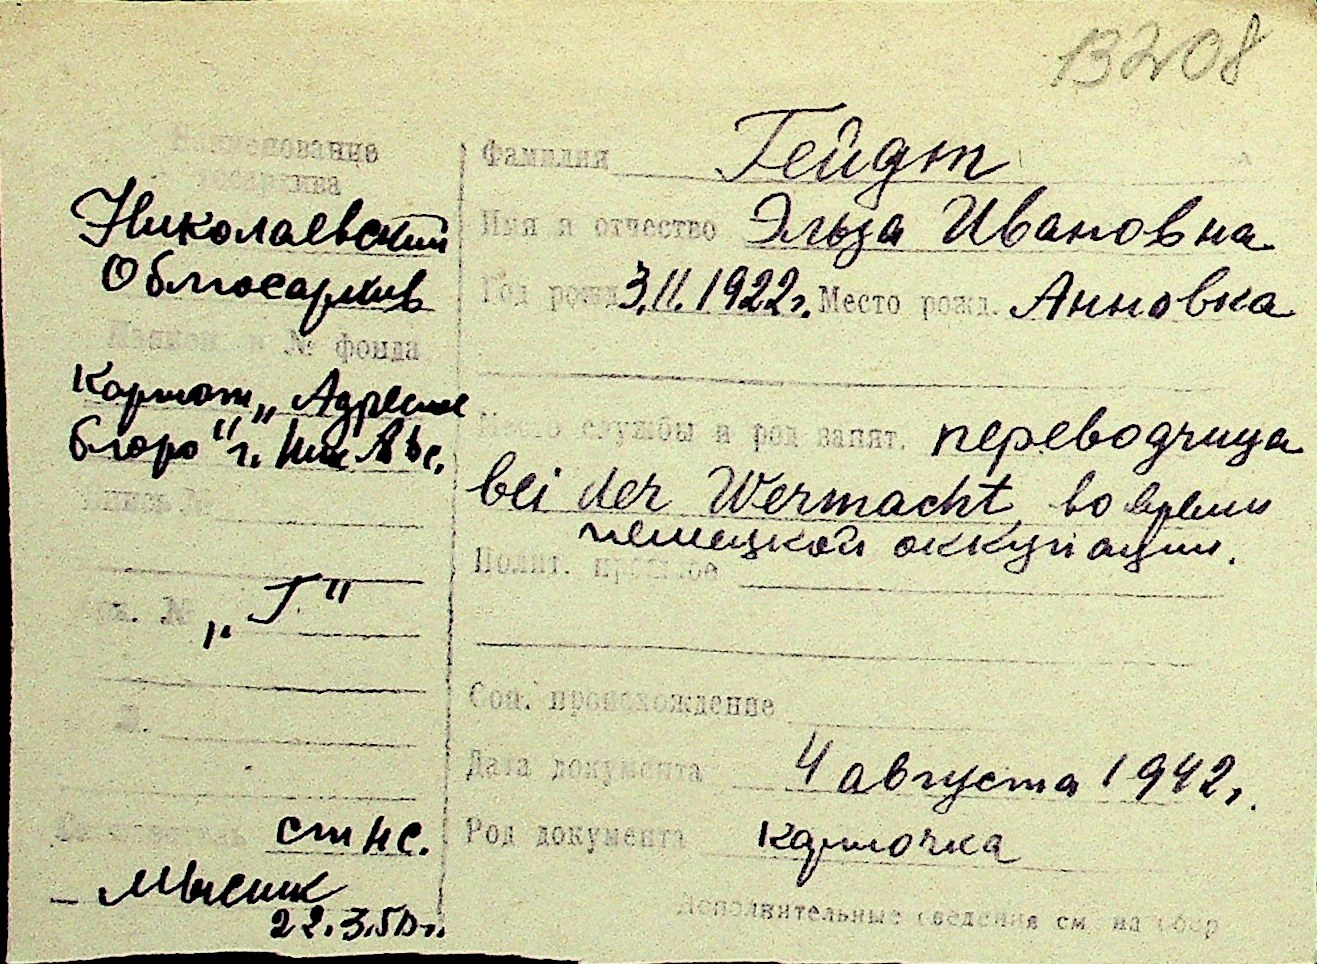 13208
Наименование
госархива
Николаевский
Облгосархив
№ фонда
Картот. „Адресное
бюро" г. Ник
Опись №
„Г"
Составитель ст нс.
Мысик
22.3.50г.
Фамилия Гейдт
Имя и отчество Эльза Ивановна
Год рожд. 3.11.1922г. Место рожд. Анновка
Место службы и род занят. переводчица
bei der Wermacht, во время
немецкой оккупации.
Полит. прошлое
Соц. происхождение
Дата документа 4 августа 1942г.
Род документа карточка
Дополнительные сведения см. на обор